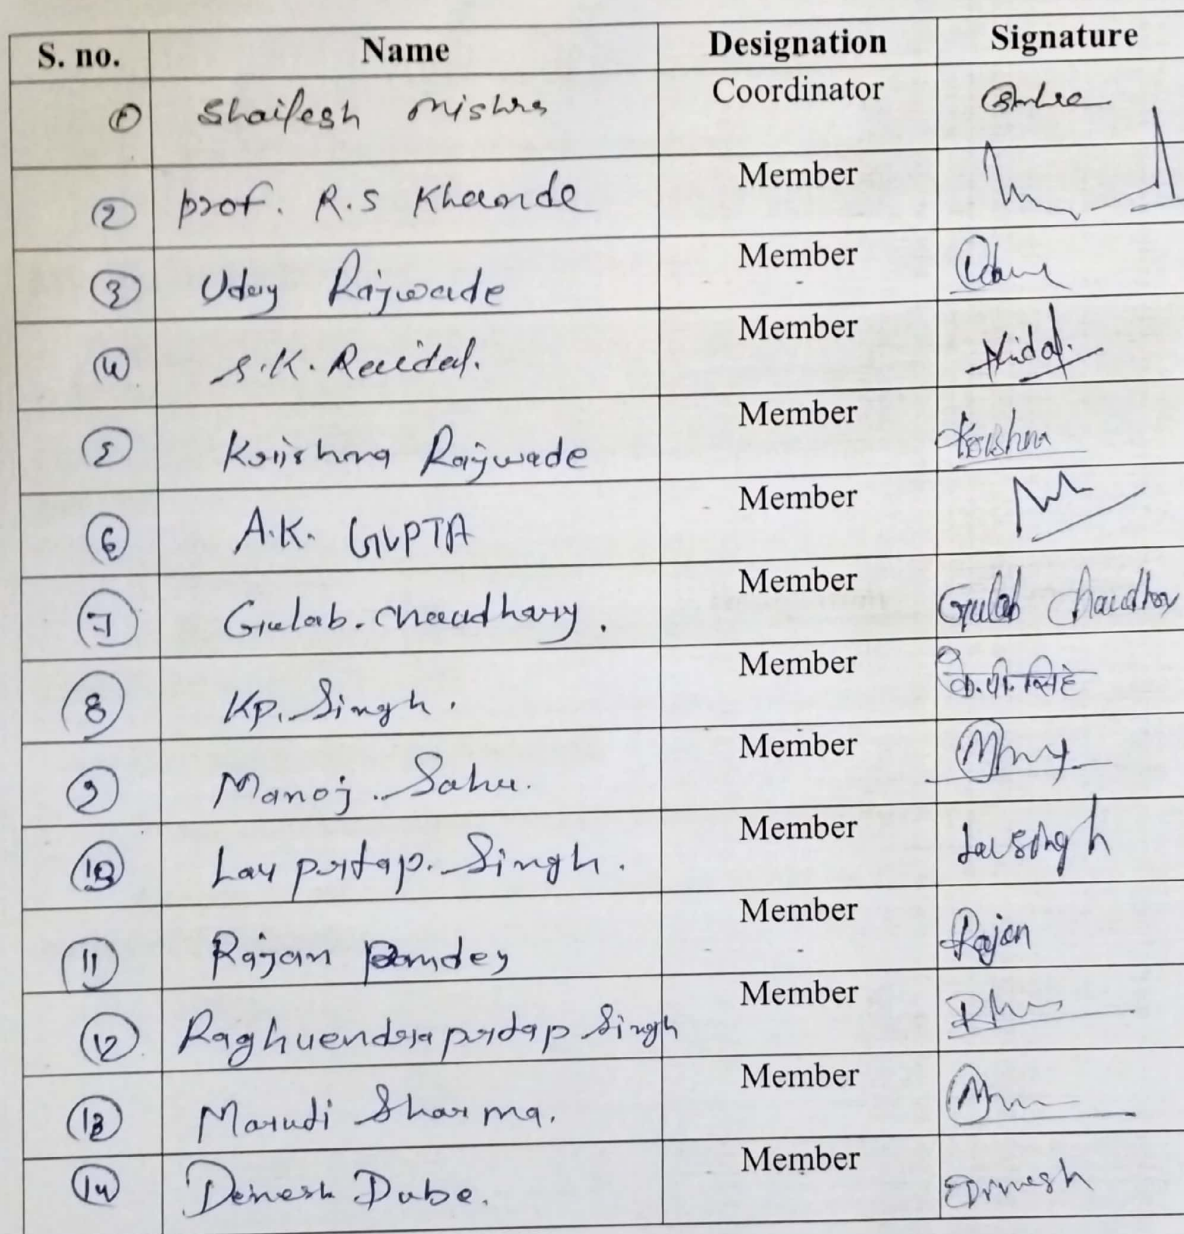 S. no. Name Designation Signature
1 Shailesh mishra Coordinator
2 prof. R.S Khamde Member
3 Uday Rajwade Member Uday
4 S.K. Reidal. Member
5 Krishna Rajwade Member Krishna
6 A.K. GUPTA Member
7 Gulab. chaudhary. Member Gulab Chaudhary
8 Kp. Singh. Member के.पी. सिंह
9 Manoj. Sahu. Member
10 Lav prtap. Singh. Member Lavsingh
11 Rajan Pamdey Member Rajan
12 Raghuendra prtap Singh Member
13 Marudi Sharma. Member
14 Dinesh Dube. Member Dinesh